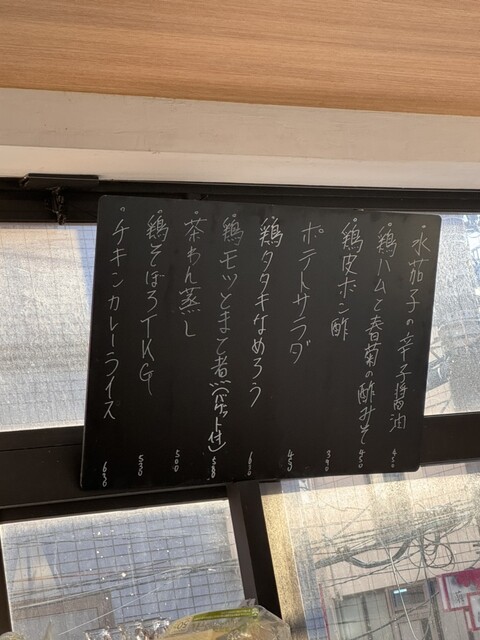 ・水茄子の辛子醤油 450
・鶏ハムと春菊の酢みそ 450
・鶏皮ポン酢 390
ポテトサラダ 450
・鶏タタキなめろう 630
・鶏モツとまと煮(バケット付) 580
・茶わん蒸し 500
・鶏そぼろTKG 530
・チキンカレーライス 630